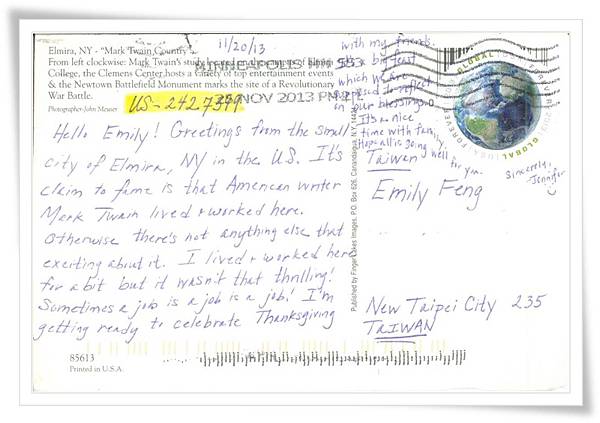 Elmira, NY - "Mark Twain Country".
From left clockwise: Mark Twain's study located on the campus of Elmira
College, the Clemens Center hosts a variety of top entertainment events
& the Newtown Battlefield Monument marks the site of a Revolutionary
War Battle.
Photographer-John Meuser
11/20/13
US-2427379
MINNEAPOLIS MN 553
25 NOV 2013 PM
Hello Emily! Greetings from the small
city of Elmira, NY in the U.S. It's
claim to fame is that American writer
Mark Twain lived + worked here.
Otherwise there's not anything else that
exciting about it. I lived + worked here
for a bit but it wasn't that thrilling!
Sometimes a job is a job is a job! I'm
getting ready to celebrate Thanksgiving
with my friends.
It's a big feast
which we are
supposed to reflect
on our blessings.
It's a nice
time with family.
Hope all is going
well for you.
Sincerely,
Jennifer
GLOBAL FOREVER
GLOBAL
USA
Taiwan
Emily Feng
New Taipei City 235
TAIWAN
Published by Finger Lakes Images, P.O. Box 626, Canandaigua, NY
85613
Printed in U.S.A.